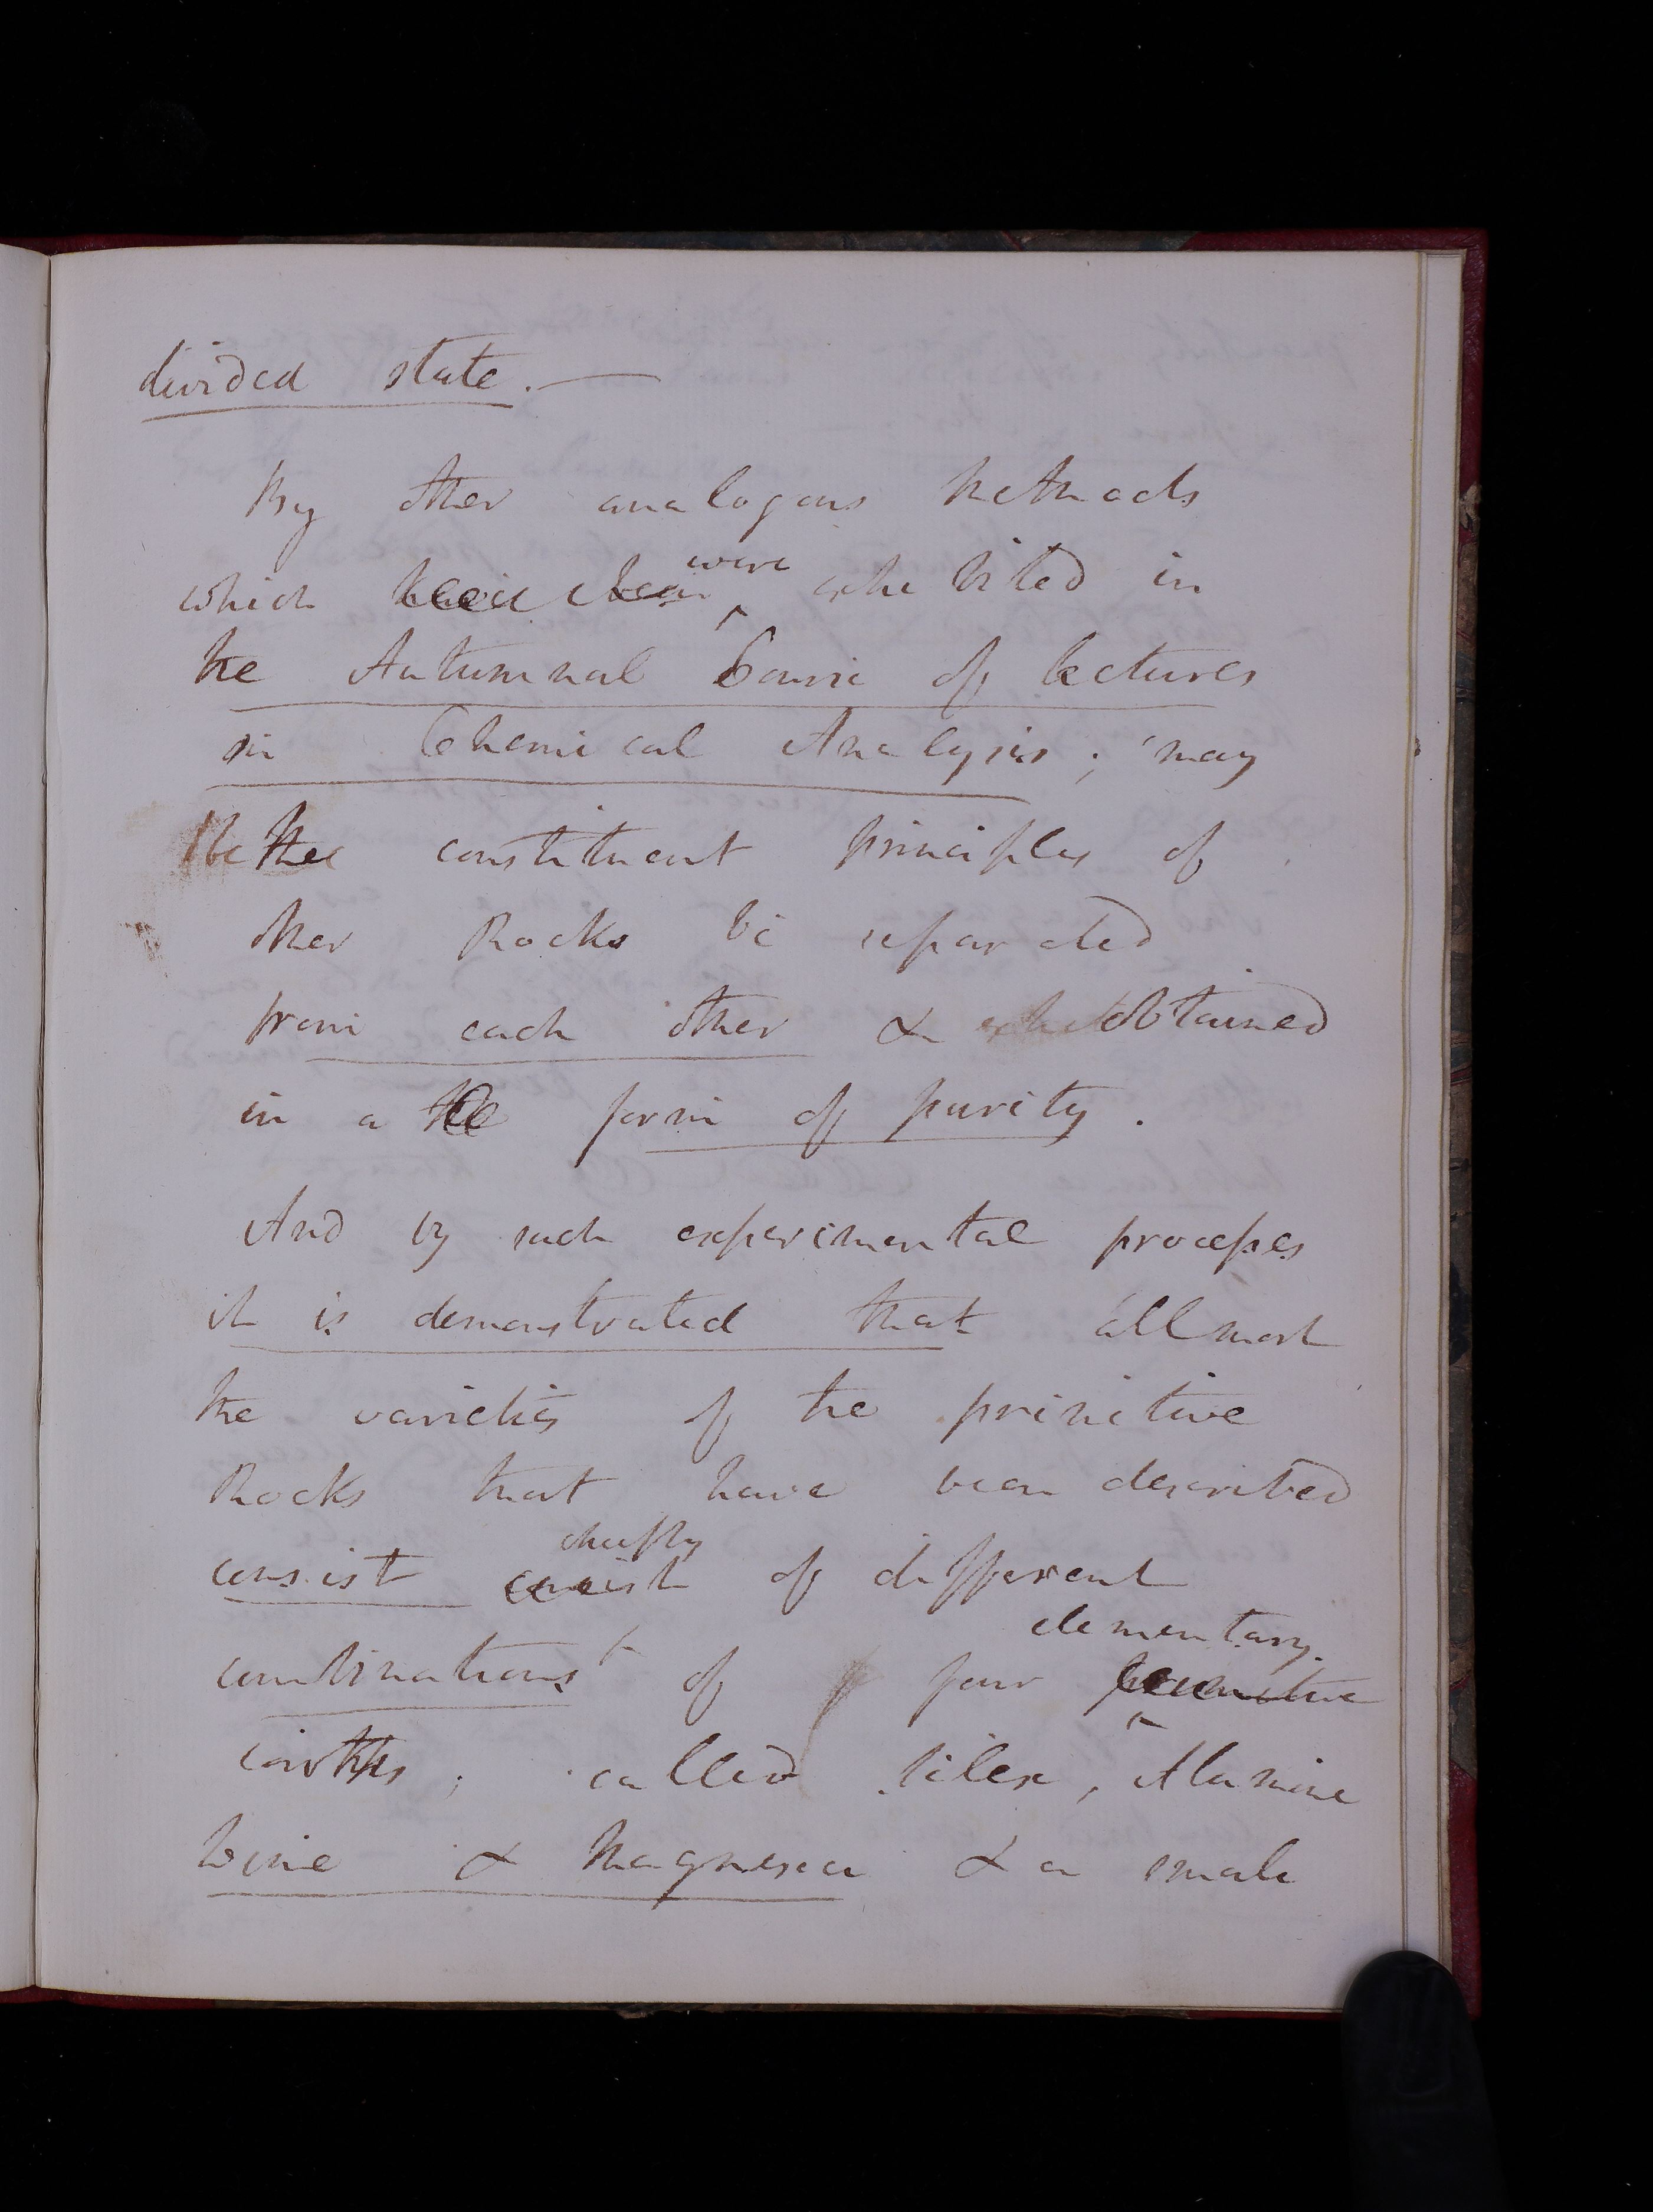 divided state. —
By other analogous methods
which have been were exhibited in
the Autumnal Course of lectures
in Chemical Analysis; may
the constituent principles of
other Rocks be separated
from each other & obtained
in a form of purity.
And by such experimental processes
it is demonstrated that all most
the varieties of the primitive
Rocks that have been described
chiefly
consist consist of different
elementary
combinations of four primitive
earths; called silex, Alumine
Lime & Magnesia & a small